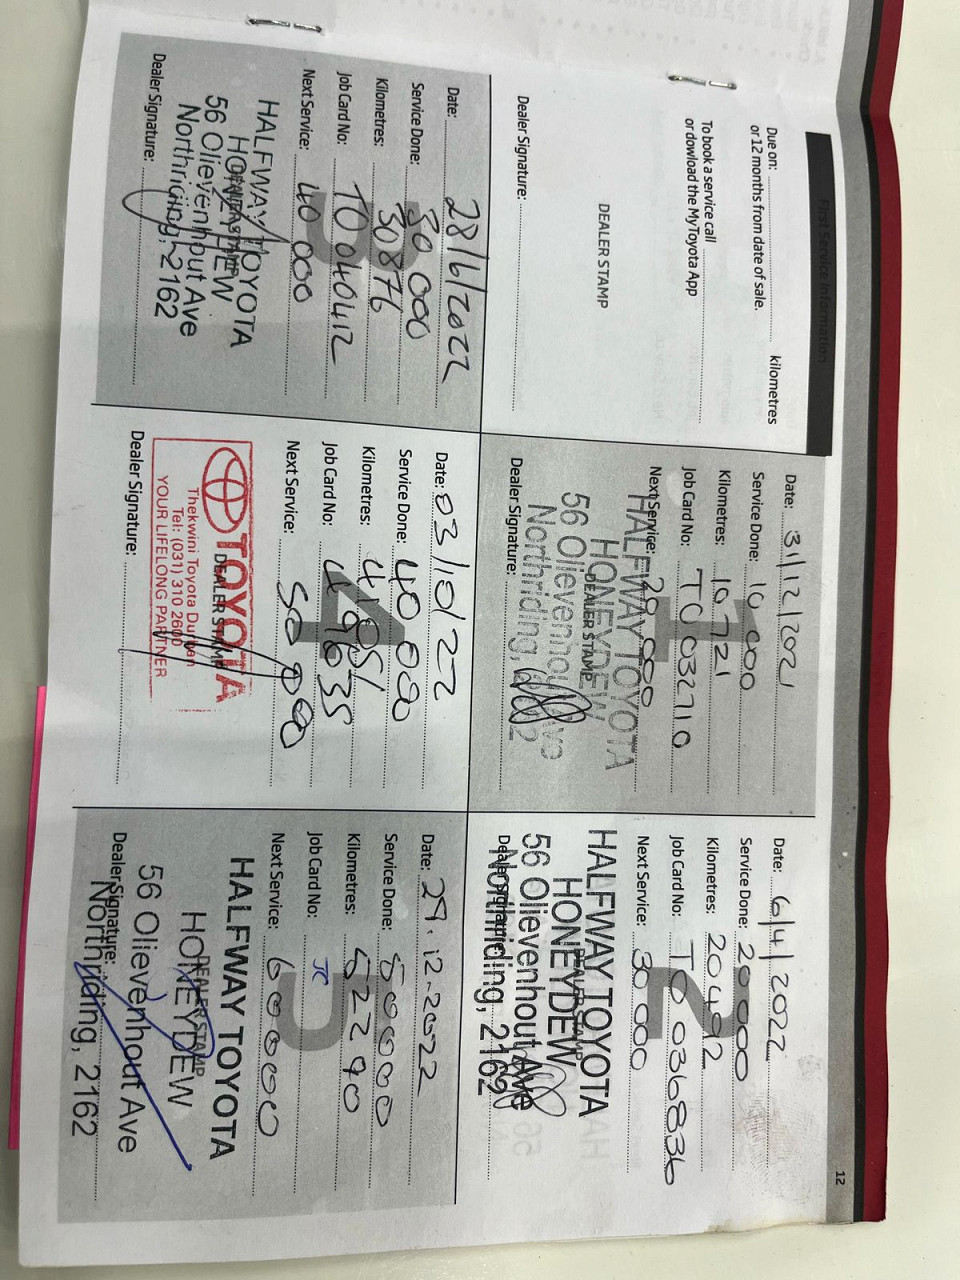 12
First Service Information
Due on: kilometres
or 12 months from date of sale.
To book a service call
or dowload the MyToyota App
DEALER STAMP
Dealer Signature:
1
Date: 31/12/2021
Service Done: 10 000
Kilometres: 10 721
Job Card No: TO 032710
Next Service: 20 000
HALFWAY TOYOTA
HONEYDEW
DEALER STAMP
56 Olievenhout Ave
Northriding, 2162
Dealer Signature:
2
Date: 6/4/2022
Service Done: 20 000
Kilometres: 20492
Job Card No: TO 036836
Next Service: 30 000
HALFWAY TOYOTA
HONEYDEW
DEALER STAMP
56 Olievenhout Ave
Northriding, 2162
Dealer Signature:
3
Date: 28/6/2022
Service Done: 30 000
Kilometres: 30876
Job Card No: TO 040412
Next Service: 40 000
HALFWAY TOYOTA
HONEYDEW
DEALER STAMP
56 Olievenhout Ave
Northriding, 2162
Dealer Signature:
4
Date: 03/10/22
Service Done: 40 000
Kilometres:
Job Card No:
Next Service: 50 000
TOYOTA
DEALER STAMP
Thekwini Toyota Durban
Tel: (031) 310 2600
YOUR LIFELONG PARTNER
Dealer Signature:
5
Date: 29.12.2022
Service Done: 50000
Kilometres: 52290
Job Card No: JC
Next Service: 60000
HALFWAY TOYOTA
HONEYDEW
DEALER STAMP
56 Olievenhout Ave
Northriding, 2162
Dealer Signature: